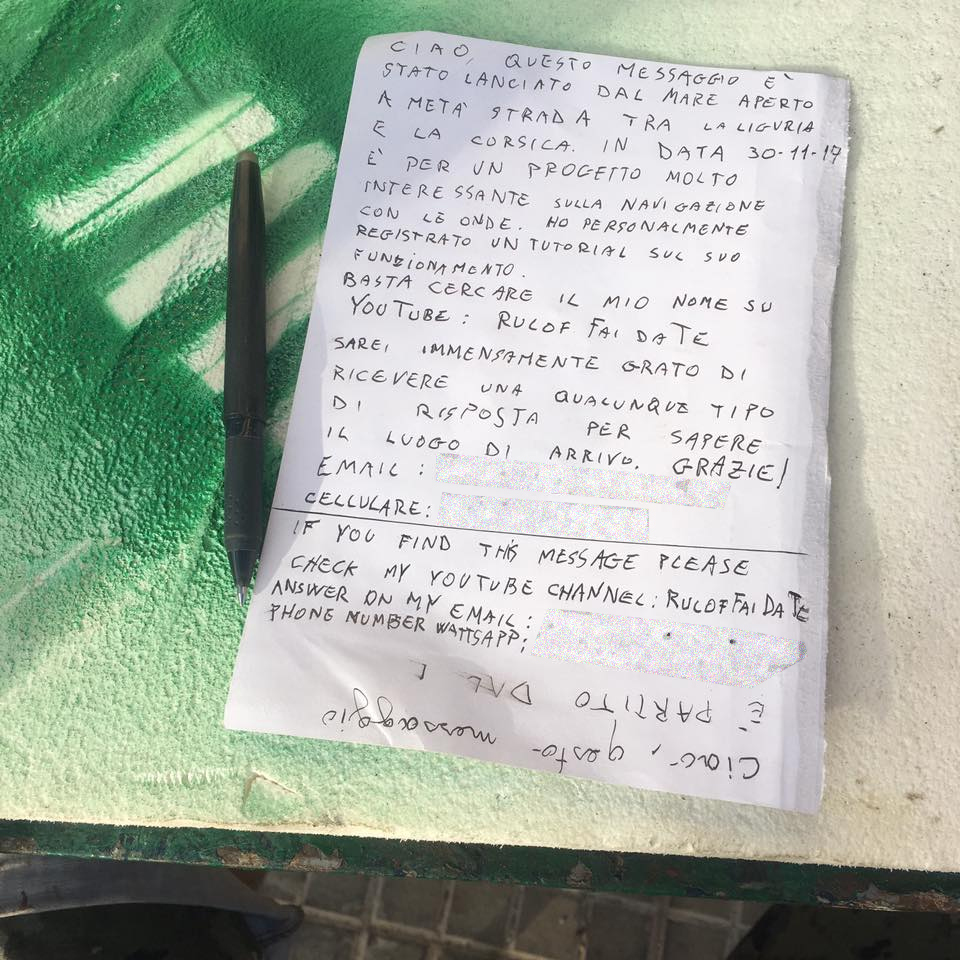 CIAO, QUESTO MESSAGGIO È
STATO LANCIATO DAL MARE APERTO
A METÀ STRADA TRA LA LIGURIA
E LA CORSICA. IN DATA 30-11-17
È PER UN PROGETTO MOLTO
INTERESSANTE SULLA NAVIGAZIONE
CON LE ONDE. HO PERSONALMENTE
REGISTRATO UN TUTORIAL SUL SUO
FUNZIONAMENTO.
BASTA CERCARE IL MIO NOME SU
YOUTUBE: RULOF FAI DA TE
SAREI IMMENSAMENTE GRATO DI
RICEVERE UNA QUALUNQUE TIPO
DI RISPOSTA PER SAPERE
IL LUOGO DI ARRIVO. GRAZIE!
EMAIL:
CELLULARE:
IF YOU FIND THIS MESSAGE PLEASE
CHECK MY YOUTUBE CHANNEL: RULOF FAI DA TE
ANSWER ON MY EMAIL:
PHONE NUMBER WATTSAPP:
Ciao, questo messaggio
È PARTITO DAL